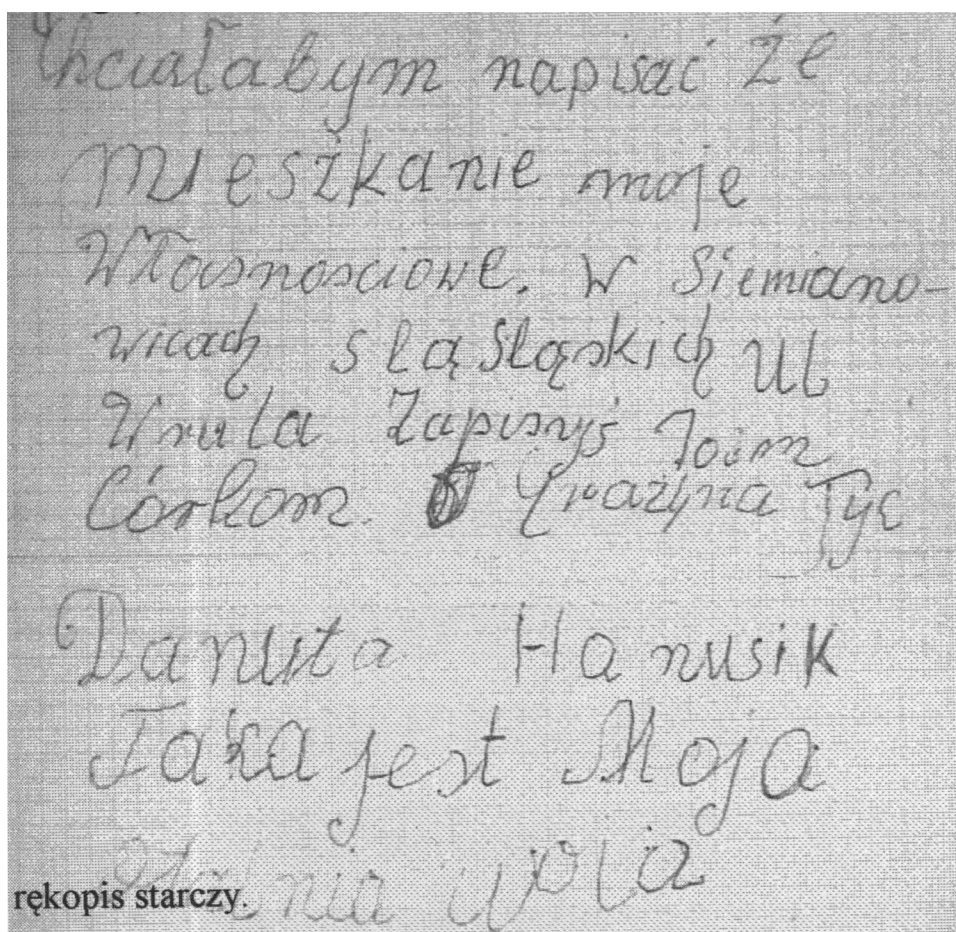 Chciałabym napisać że
Mieszkanie moje
Własnosciowe. W Siemiano-
wicach slą Sląskich Ul
Wrula Zapisyś
Córkom. Grażyna Tyc
Danuta Hanusik
Taka jest Moja
wola
rękopis starczy.